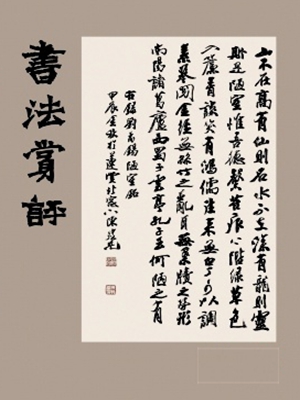 書法賞評
山不在高有仙則名水不在深有龍則靈
斯是陋室惟吾德馨苔痕上階綠草色
入簾青談笑有鴻儒往來無白丁可以調
素琴閱金經無絲竹之亂耳無案牘之勞形
南陽諸葛廬西蜀子雲亭孔子云何陋之有
右錄劉禹錫陋室銘
甲辰金秋於